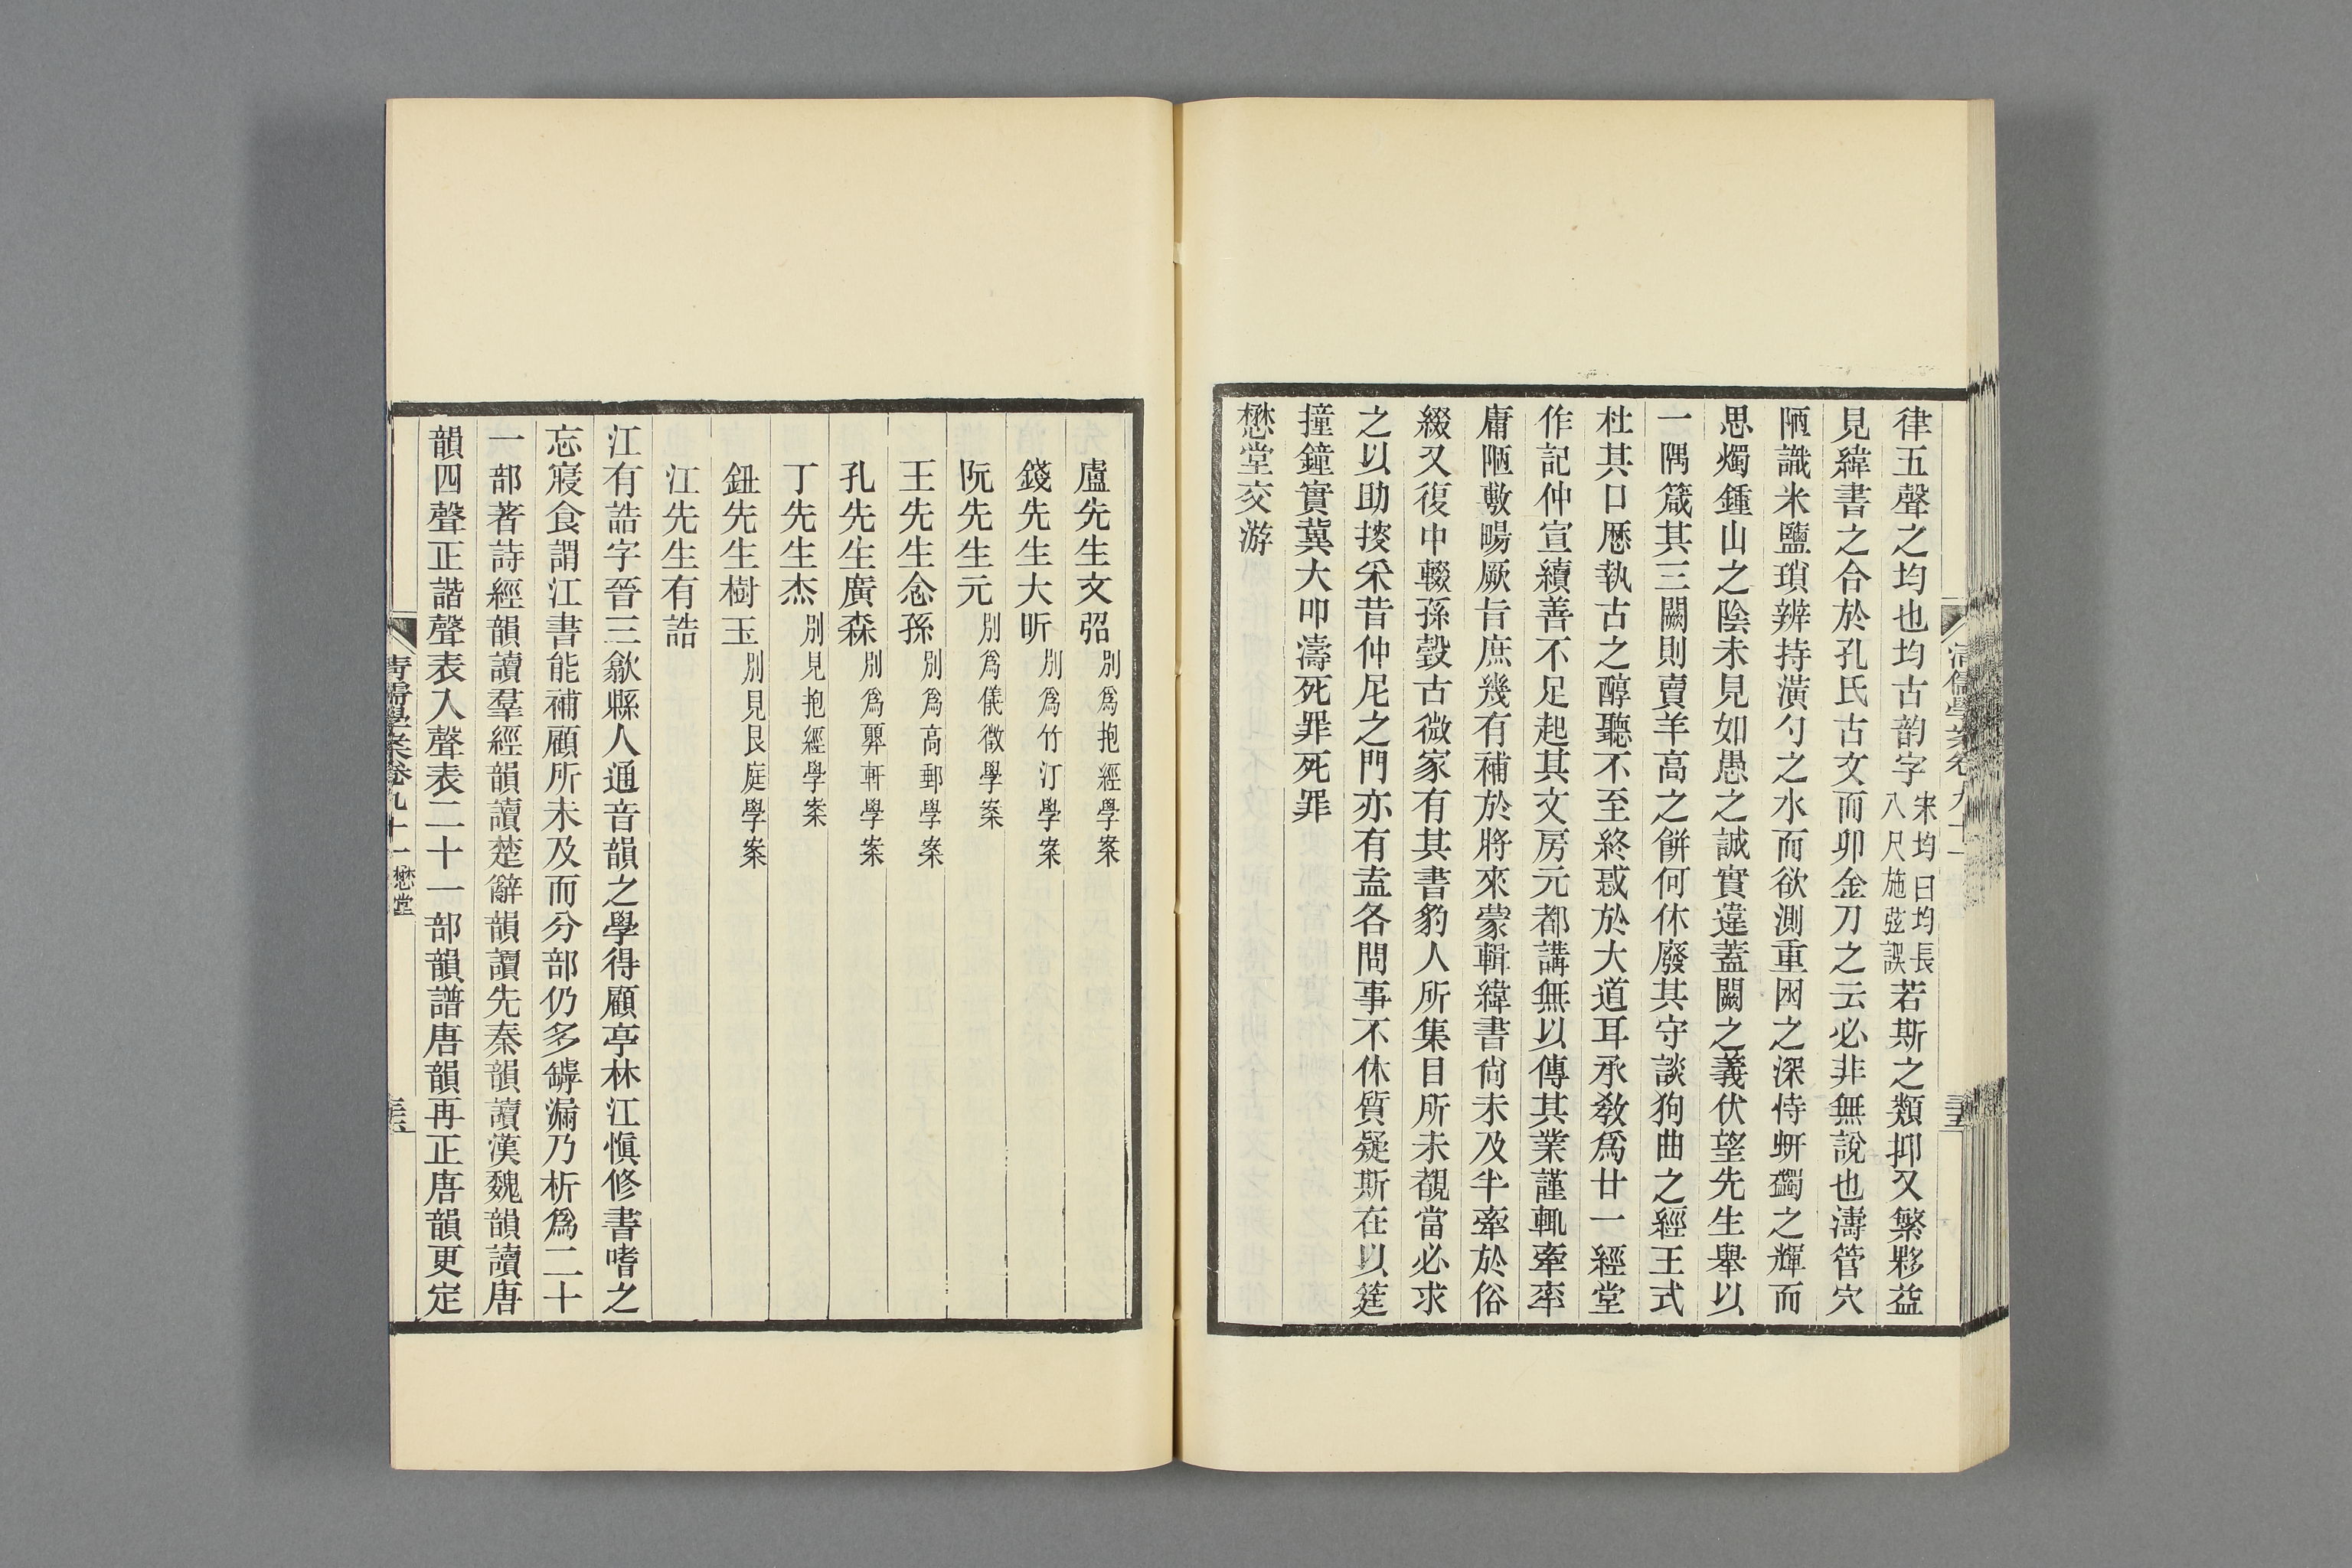 律五聲之均也均古韵字宋均曰均長八尺施弦誤若斯之類抑又繁夥益
見緯書之合於孔氏古文而卯金刀之云必非無說也濤管穴
陋識米鹽瑣辨持潢勺之水而欲測重困之深恃蚈蠲之輝而
思燭鍾山之陰未見如愚之誠實違蓋闕之義伏望先生舉以
一隅箴其三闕則賣羊高之餅何休廢其守談狗曲之經王式
杜其口厯執古之醇聽不至終惑於大道耳承教爲廿一經堂
作記仲宣續善不足起其文房元都講無以傳其業謹輒牽率
庸陋敷暘厥旨庶幾有補於將來蒙輯緯書尙未及半牽於俗
綴又復中輟孫瑴古微家有其書豹人所集目所未覩當必求
之以助掞采昔仲尼之門亦有盍各問事不休質疑斯在以筳
撞鐘實冀大叩濤死罪死罪
懋堂交游
盧先生文弨別爲抱經學案
錢先生大昕別爲竹汀學案
阮先生元別爲儀徵學案
王先生念孫別爲高郵學案
孔先生廣森別爲顨軒學案
丁先生杰別見抱經學案
鈕先生樹玉別見艮庭學案
江先生有誥
江有誥字晉三歙縣人通音韻之學得顧亭林江愼修書嗜之
忘寢食謂江書能補顧所未及而分部仍多罅漏乃析爲二十
一部著詩經韻讀羣經韻讀楚辭韻讀先秦韻讀漢魏韻讀唐
韻四聲正諧聲表入聲表二十一部韻譜唐韻再正唐韻更定
清儒學案卷九十一 懋堂